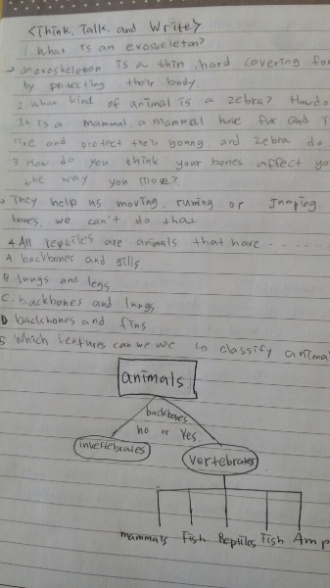 <Think, Talk, and Write>
1. What is an exoskeleton?
→ an exoskeleton is a thin, hard covering fo
by protecting their body.
2. What kind of animal is a zebra? How do
It is a mammal. a mammal have fur and
live and protect their young. and zebra do
3. How do you think your bones affect yo
the way you move?
They help us moving, runing or Jumping
bones, we can't do that
4. All reptiles are animals that have ......
A. backbones and gills
B. lungs and legs
C. backbones and lungs
D backbones and fins
5 Which features can we we to classify anima
animals
backbones
no or Yes
invertebrates
vertebrates
mammals Fish Reptiles Fish Amp